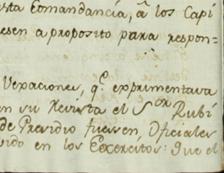 sta Comandancia, a los Capi
esen a proposito para respon=
Vexaciones, q.e exprimentava
en su Revista el S.or Rubi
de Presidio fuessen, Oficiales
vido en los Exercitos: que el